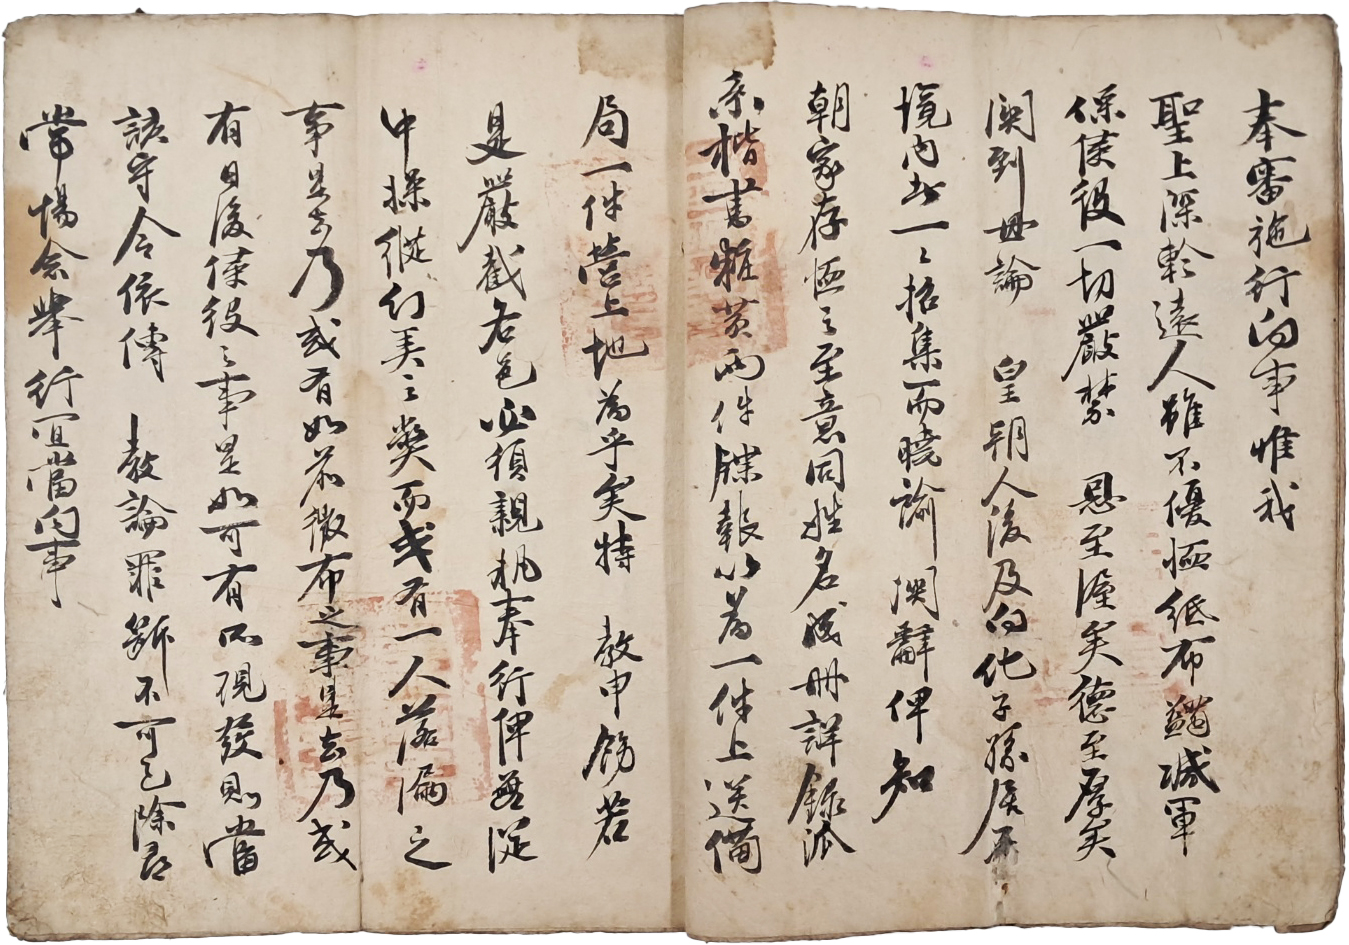 奉審施行向事惟我
聖上深軫遠人雖不優恤紙布蠲减軍
保侯役一切嚴禁 恩至渥矣德至厚矣
関到毋論 皇朝人後及向化子孫居
境內者一一招集而曉諭 関辭俾知
朝家存恤之至意同姓名成冊詳錄派
系楷書粧黃兩件牒報以爲一件上送備
局一件營上地爲乎矣特 敎申飭若
是嚴截各色必須親執奉行俾無從
中操縱幻美之獘而或有一人落漏之
事是去乃或有如前徵布之事是去乃或
有日後侵役之事是如可有所現發則當
該守令依傳 敎論罪斷不可已除尋
常惕念擧行宜當向事